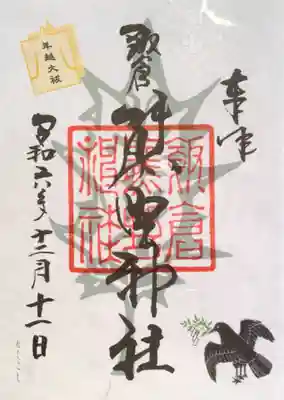 奉拝
飯倉
熊野神社
飯倉
熊野
神社
令和六年十二月十一日
年越大祓